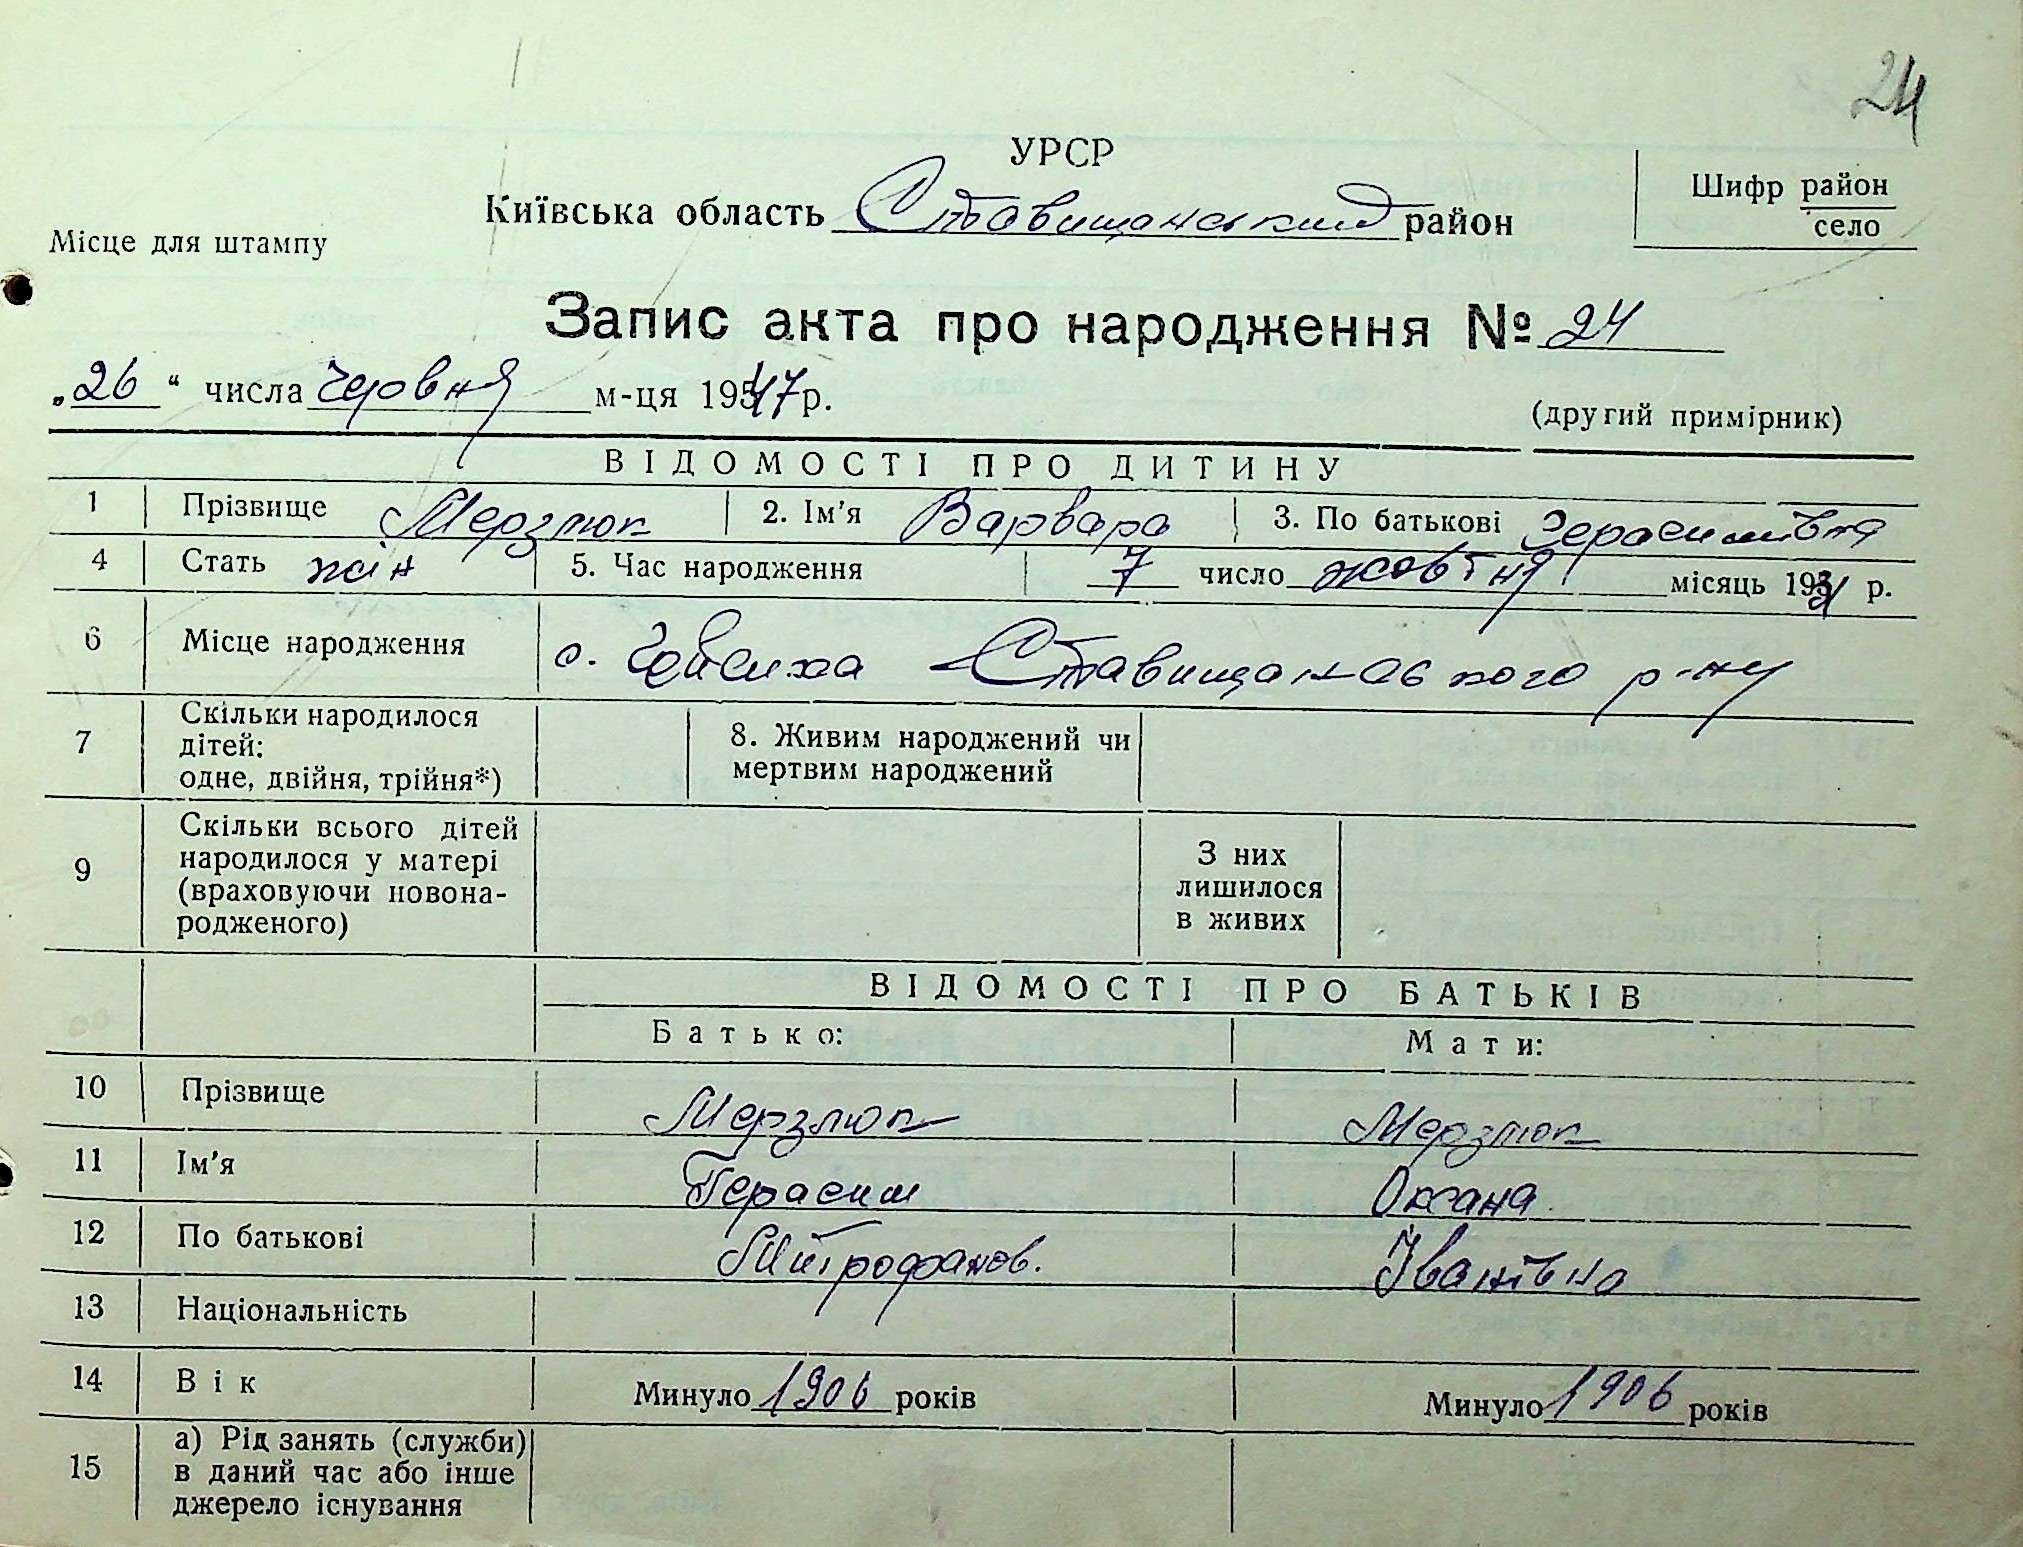 24
УРСР
Київська область Ставищанський район
Шифр район
село
Місце для штампу
Запис акта про народження № 24
„26“ числа червня м-ця 1947 р.
(другий примірник)
ВІДОМОСТІ ПРО ДИТИНУ
1 Прізвище Мерзлюк 2. Ім'я Варвара 3. По батькові Герасимівна
4 Стать жін 5. Час народження 7 число жовтня місяць 193 р.
6 Місце народження с. Ставищанського р-ну
7 Скільки народилося
дітей:
одне, двійня, трійня*)
8. Живим народжений чи
мертвим народжений
9 Скільки всього дітей
народилося у матері
(враховуючи новона-
родженого)
З них
лишилося
в живих
ВІДОМОСТІ ПРО БАТЬКІВ
Батько: Мати:
10 Прізвище Мерзлюк Мерзлюк
11 Ім'я Герасим Оксана
12 По батькові Митрофанов. Іванівна
13 Національність
14 Вік Минуло 1906 років Минуло 1906 років
15 а) Рід занять (служби)
в даний час або інше
джерело існування